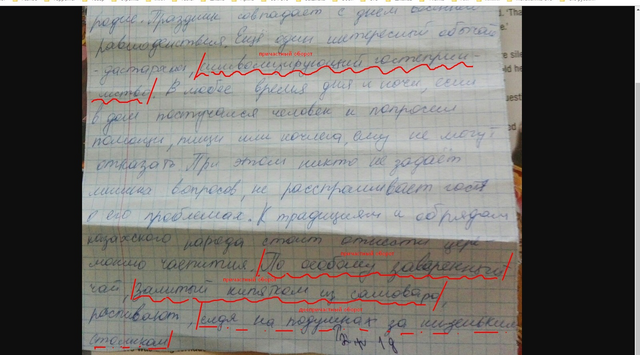 родие. Праздник совпадает с днём весеннего
равноденствия. Ещё один интересный обычай
причастный оборот
-дастархан, символизирующий гостеприим-
ство. В любое время дня и ночи, если
в дом постучался человек и попросил
помощи, пищи или ночлега, ему не могут
отказать. При этом никто не задаёт
лишних вопросов, не расспрашивает гостя
о его проблемах. К традициям и обрядам
казахского народа стоит отнести цере-
причастный оборот
монию чаепития. По особому заваренный
чай, залитый кипятком из самовара,
деепричастный оборот
распивают, сидя на подушках за низеньким
столиком